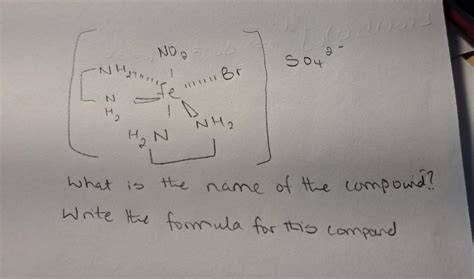 NO2
NH2 Br SO4 2-
N Fe
H2 NH2
H2N
What is the name of the compound?
Write the formula for this compound